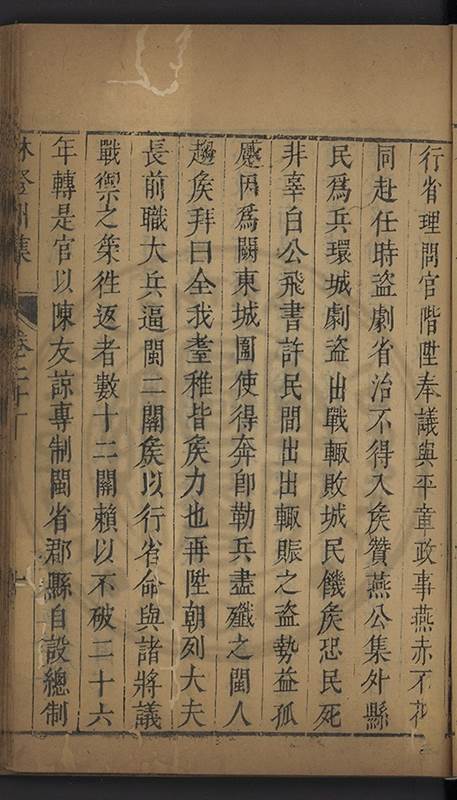 行省理問官階陞奉議與平童政事燕赤不花
同赴任時盜劇省治不得入矦贊燕公集外縣
民爲兵環城劇盜出戰輙敗城民饑矦恐民死
非辜白公飛書許民間出出輙賑之盜勢益孤
蹙因爲闢東城圍使得奔卽勒兵盡殲之閩人
趨矦拜曰全我耋稚皆矦力也再陞朝列大夫
長前職大兵逼閩二關矦以行省命與諸將議
戰禦之筞徃返者數十二關賴以不破二十六
年轉是官以陳友諒專制閩省郡縣自設總制
林登州集 卷二十